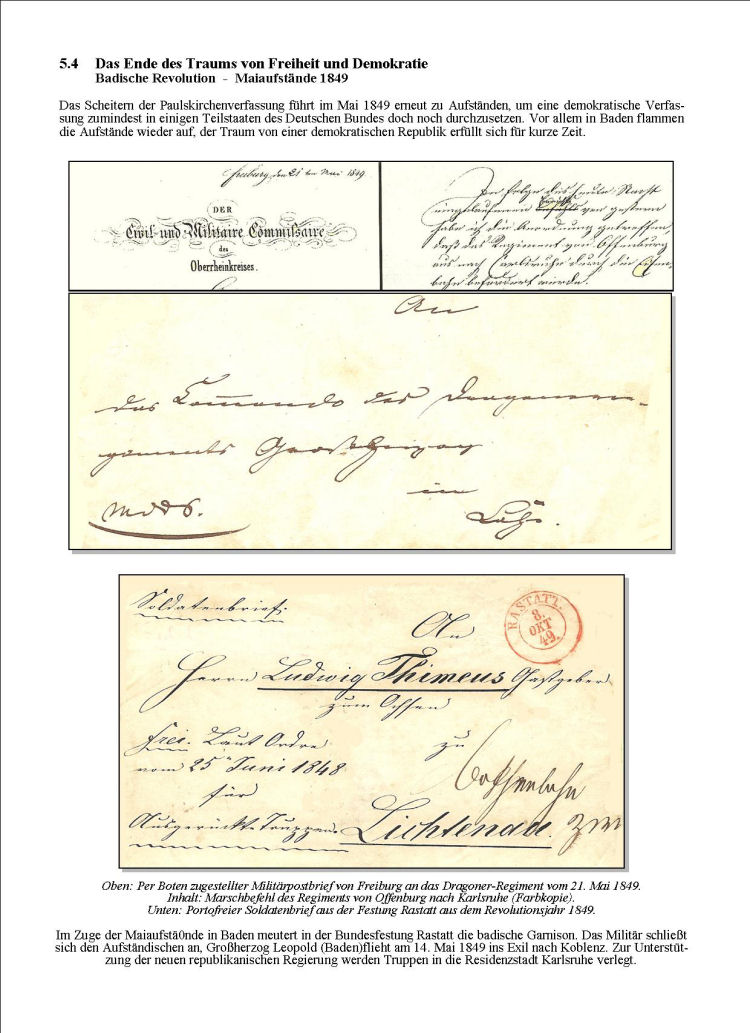 5.4 Das Ende des Traums von Freiheit und Demokratie
Badische Revolution - Maiaufstände 1849
Das Scheitern der Paulskirchenverfassung führt im Mai 1849 erneut zu Aufständen, um eine demokratische Verfas-
sung zumindest in einigen Teilstaaten des Deutschen Bundes doch noch durchzusetzen. Vor allem in Baden flammen
die Aufstände wieder auf, der Traum von einer demokratischen Republik erfüllt sich für kurze Zeit.
Freiburg, den 21ten Mai 1849
DER
Civil- und Militaire Commissaire
des
Oberrheinkreises.
In Folge des heute Nacht
eingelaufenen von gestern
habe ich die Anordnung getroffen,
daß das Regiment von Offenburg
aus nach Carlsruhe durch die Eisen-
bahn befördert werde.
An
das Commando des Dragonerre-
giments Großherzog
in
Lahr.
Soldatenbrief.
RASTATT.
8.
OKT
49.
An
Herrn Ludwig Thimeus Gastgeber
zum Ochsen
frei. Laut Ordre
zu
vom 25n Juni 1848
für
Ausgerückte Truppen. Lichtenau.
Oben: Per Boten zugestellter Militärpostbrief von Freiburg an das Dragoner-Regiment vom 21. Mai 1849.
Inhalt: Marschbefehl des Regiments von Offenburg nach Karlsruhe (Farbkopie).
Unten: Portofreier Soldatenbrief aus der Festung Rastatt aus dem Revolutionsjahr 1849.
Im Zuge der Maiaufstä0nde in Baden meutert in der Bundesfestung Rastatt die badische Garnison. Das Militär schließt
sich den Aufständischen an, Großherzog Leopold (Baden)flieht am 14. Mai 1849 ins Exil nach Koblenz. Zur Unterstüt-
zung der neuen republikanischen Regierung werden Truppen in die Residenzstadt Karlsruhe verlegt.